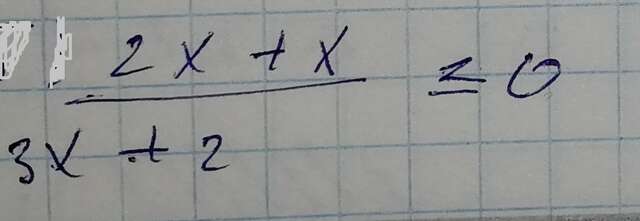 2x + x
3x + 2
≤ 0